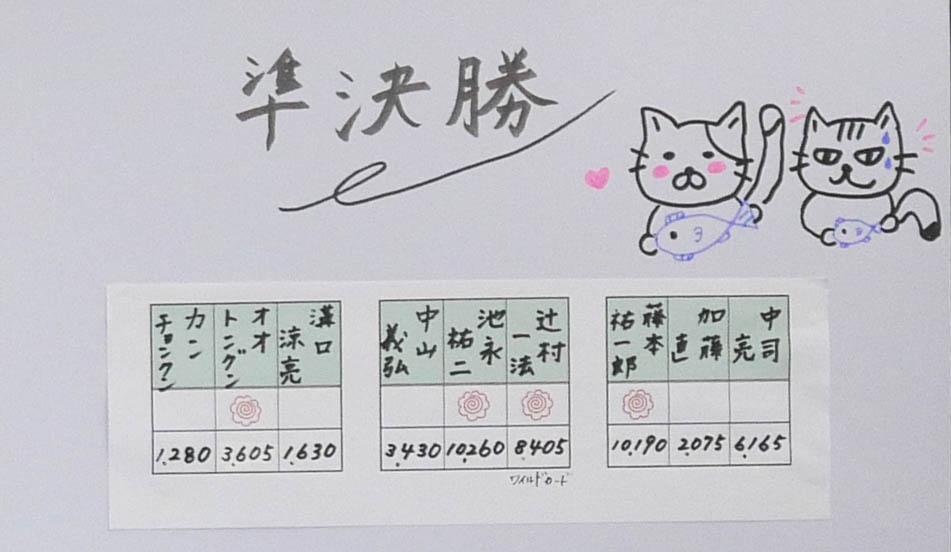 準決勝
カン チョンクン
オオ トングン
溝口 涼亮
1.280 3.605 1.630
中山 義弘
池永 祐二
辻村 一法
3.430 10.260 8.405
ワイルドカード
藤本 祐一郎
加藤 直
中司 亮
10.190 2.075 6.165